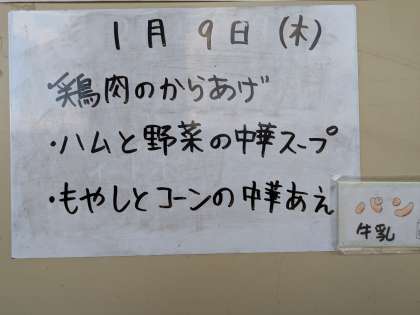 1月9日(木)
・鶏肉のからあげ
・ハムと野菜の中華スープ
・もやしとコーンの中華あえ
パン
牛乳